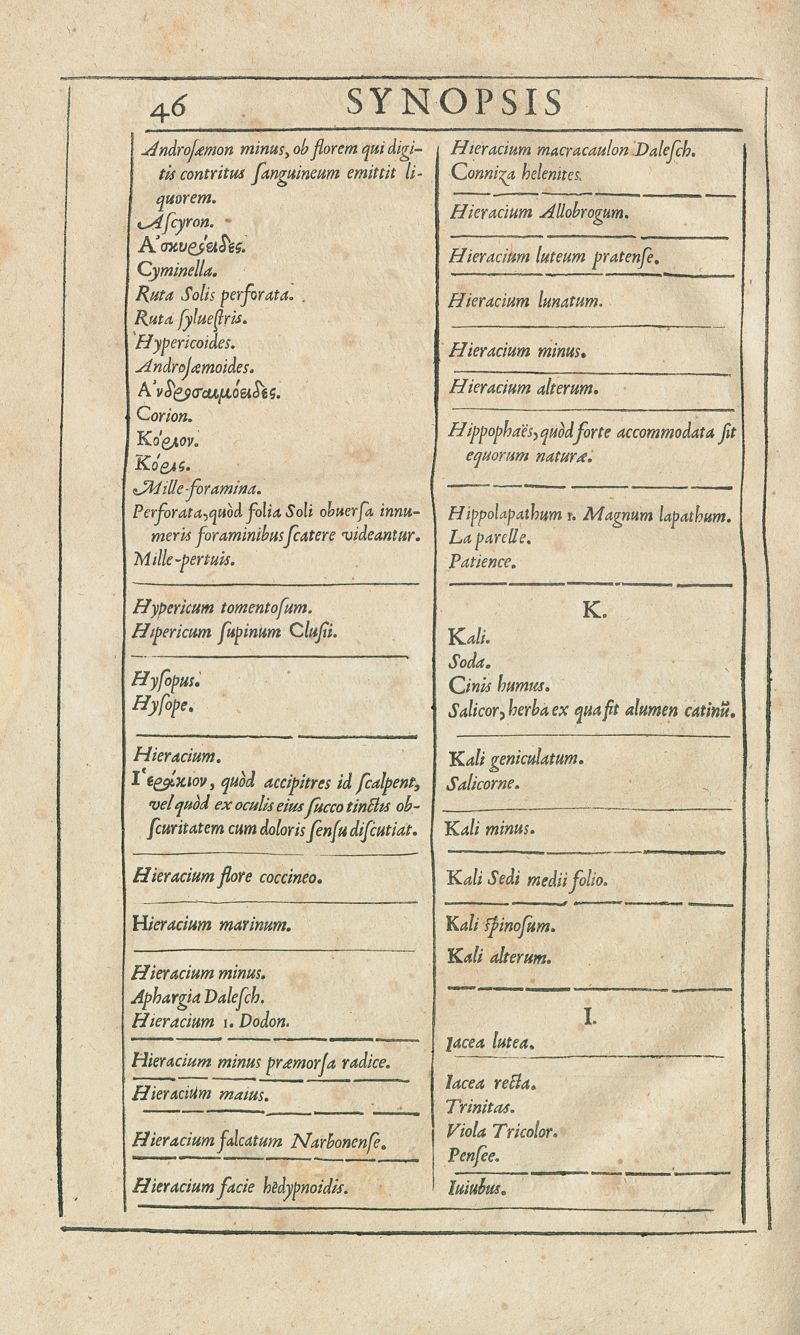 46 SYNOPSIS
Androsæmon minus, ob florem qui digi-
tis contritus ſanguineum emittit li-
quorem.
Aſcyron.
Ἀσκυρόειδες.
Cyminella.
Ruta Solis perforata.
Ruta ſylueſtris.
Hypericoides.
Androſæmoides.
Ἀνδροσαιμόειδες.
Corion.
Κόριον.
Κόρις.
Mille-foramina.
Perforata, quòd folia Soli obuerſa innu-
meris foraminibus ſcatere videantur.
Mille-pertuis.
Hypericum tomentoſum.
Hipericum ſupinum Cluſii.
Hyſopus.
Hyſope.
Hieracium.
Ἱεράκιον, quòd accipitres id ſcalpent,
vel quòd ex oculis eius ſucco tinctus ob-
ſcuritatem cum doloris ſenſu diſcutiat.
Hieracium flore coccineo.
Hieracium marinum.
Hieracium minus.
Aphargia Daleſch.
Hieracium 1. Dodon.
Hieracium minus præmorſa radice.
Hieracium maius.
Hieracium falcatum Narbonenſe.
Hieracium facie hedypnoidis.
Hieracium macracaulon Daleſch.
Conniza helenites.
Hieracium Allobrogum.
Hieracium luteum pratenſe.
Hieracium lunatum.
Hieracium minus.
Hieracium alterum.
Hippophaës, quòd forte accommodata ſit
equorum naturæ.
Hippolapathum 1. Magnum lapathum.
La parelle.
Patience.
K.
Kali.
Soda.
Cinis humus.
Salicor, herba ex qua fit alumen catinū.
Kali geniculatum.
Salicorne.
Kali minus.
Kali Sedi medii folio.
Kali ſpinoſum.
Kali alterum.
I.
Iacea lutea.
Iacea recta.
Trinitas.
Viola Tricolor.
Penſee.
Iuiubus.